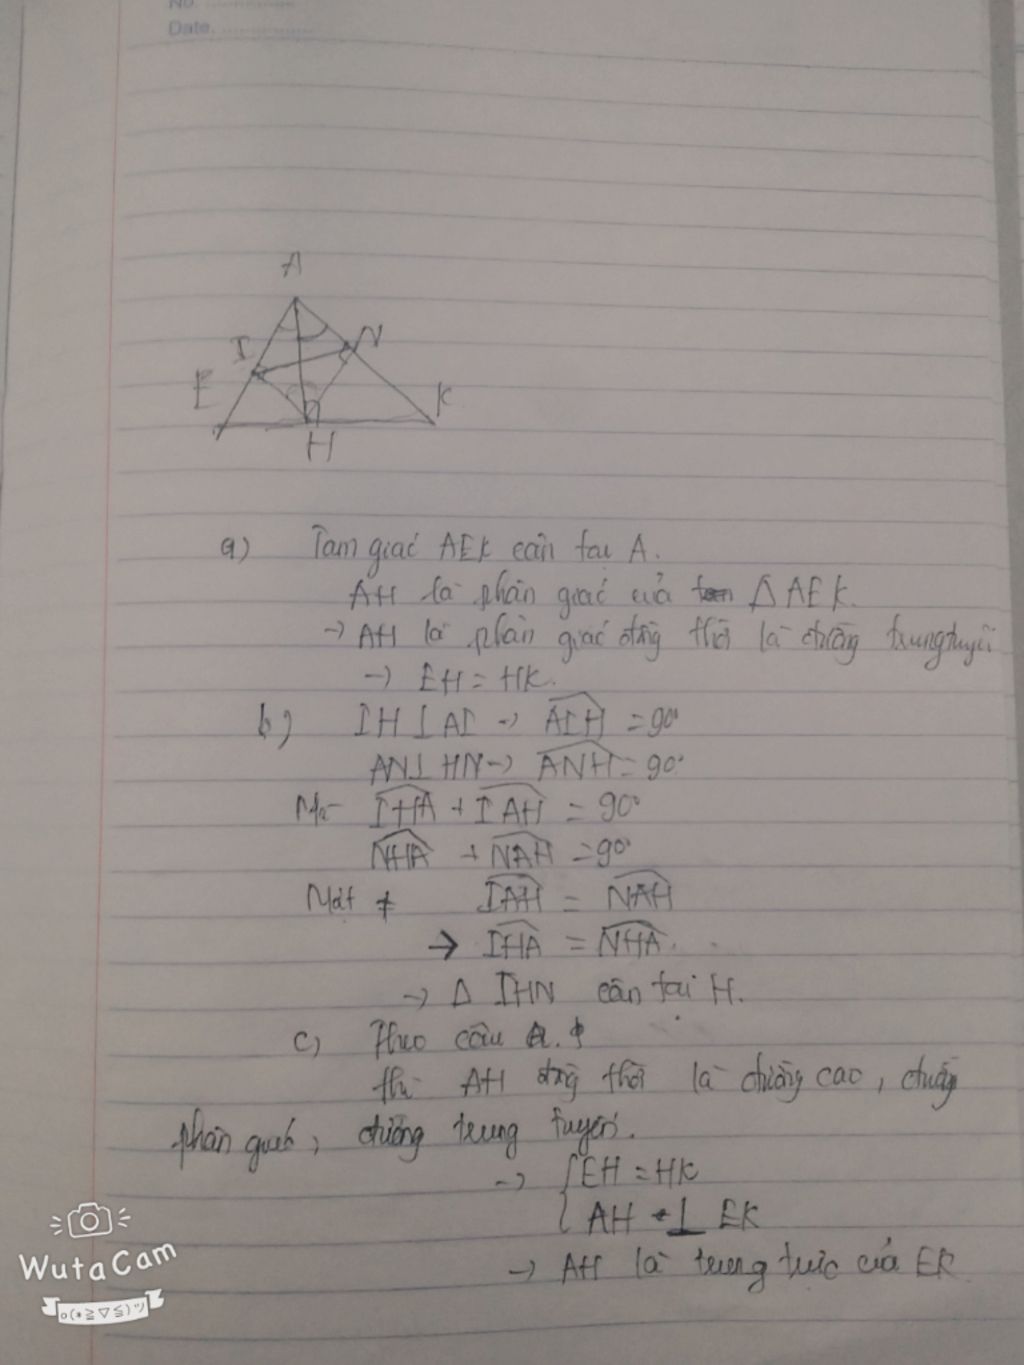 No. ................
Date. ................
A
I
N
E
K
H
a) Tam giác AEK cân tại A.
AH là phân giác của Δ AEK.
→ AH là phân giác đồng thời là đường trung tuyến
→ EH = HK.
b) IH ⊥ AI → AIH = 90°
AN ⊥ HN → ANH = 90°
Mà IHA + IAH = 90°
NHA + NAH = 90°
Mặt ≠ IAH = NAH
→ IHA = NHA.
→ Δ IHN cân tại H.
c) Theo câu a.
thì AH đồng thời là đường cao, đường
phân giác, đường trung tuyến.
→ { EH = HK
AH ⊥ EK
→ AH là trung trực của EK
WutaCam
o(*≧▽≦)ツ